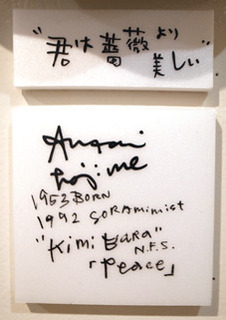 "君は薔薇より
美しい"
Angai
hajime
1953 BORN
1992 SORAmimist
"Kimi Bara"
N.F.S.
「Peace」